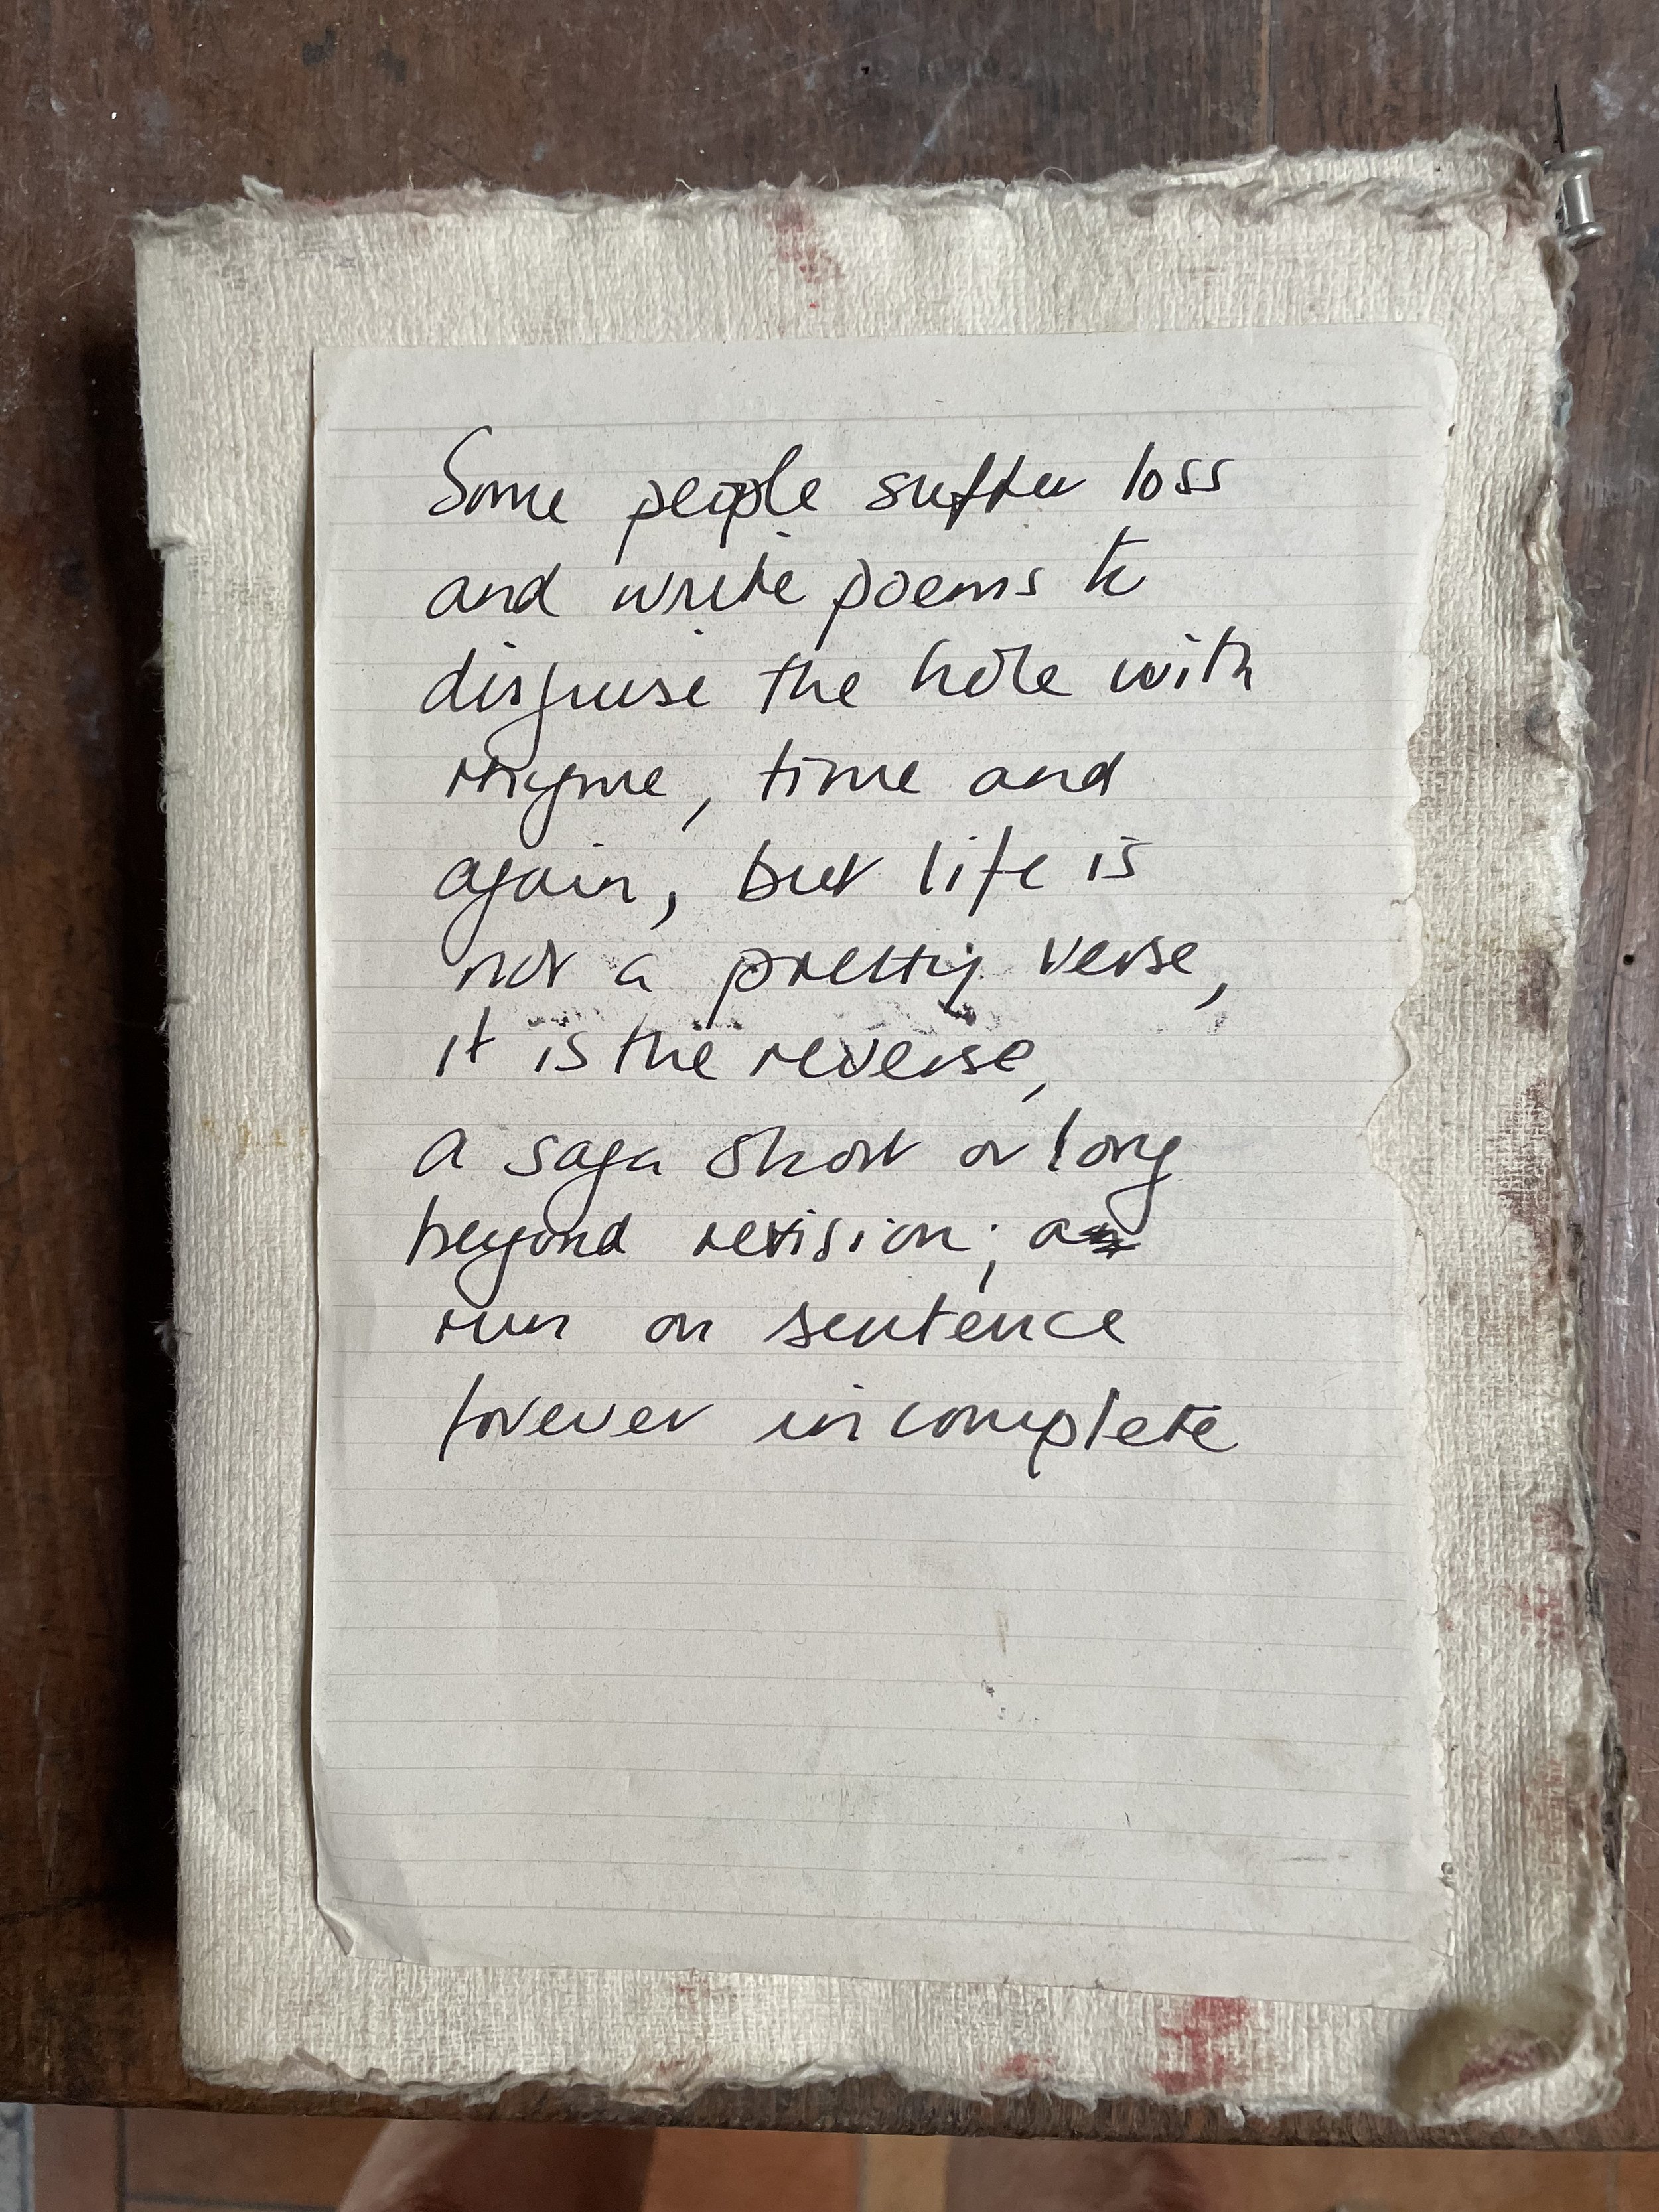 Some people suffer loss
and write poems to
disguise the hole with
rhyme, time and
again, but life is
not a pretty verse,
it is the reverse,
a saga short or long
beyond revision; a
run on sentence
forever incomplete